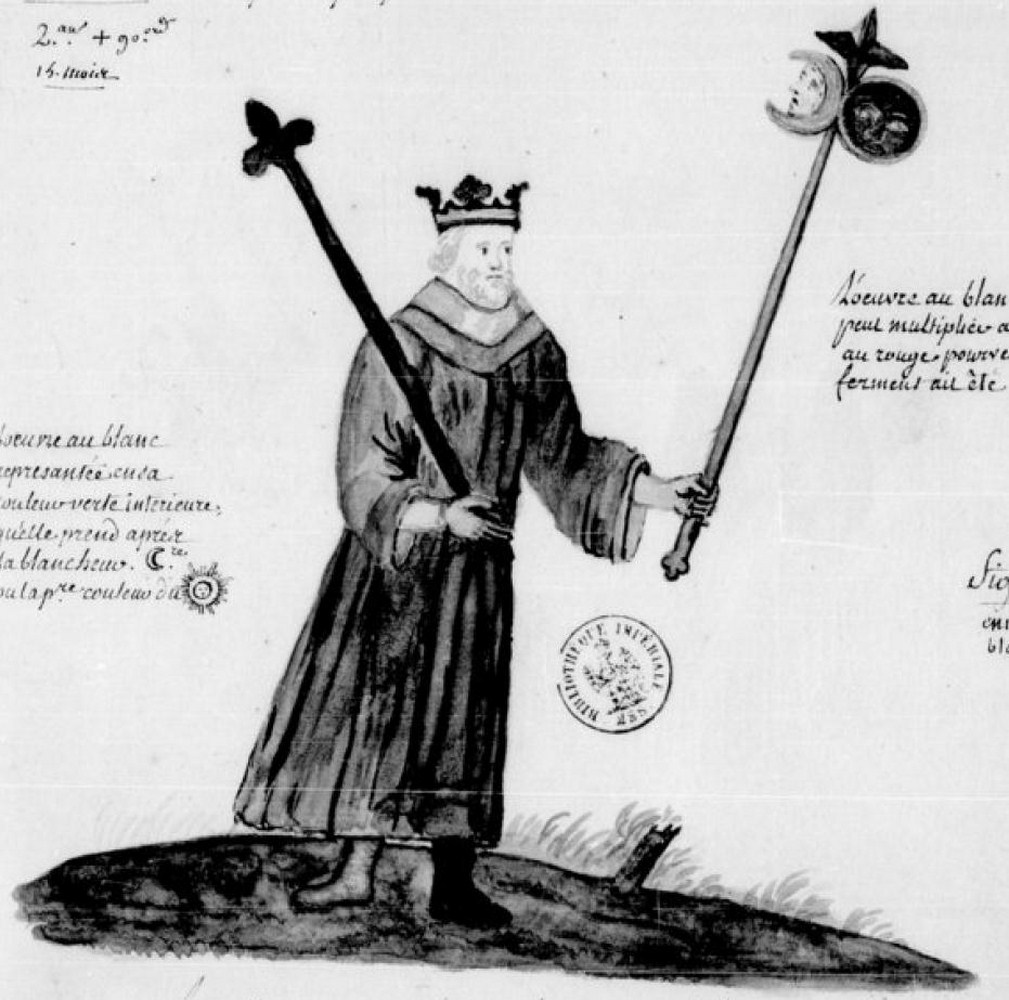 2.
15. mois
L'oeuvre au blan
peut multipliée a
au rouge pourve
ferment ait été
loeuvre au blanc
represantée en sa
couleur verte intérieure,
qu'elle prend aprés
la blancheur. ☾.re
ou la pre couleur du ☉
Sig
en
bla
BIBLIOTHEQUE IMPÉRIALE MSS